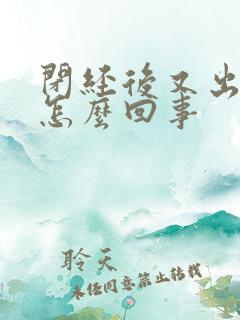 閉經後又出
怎麼回事
聆天
未經同意禁止轉載